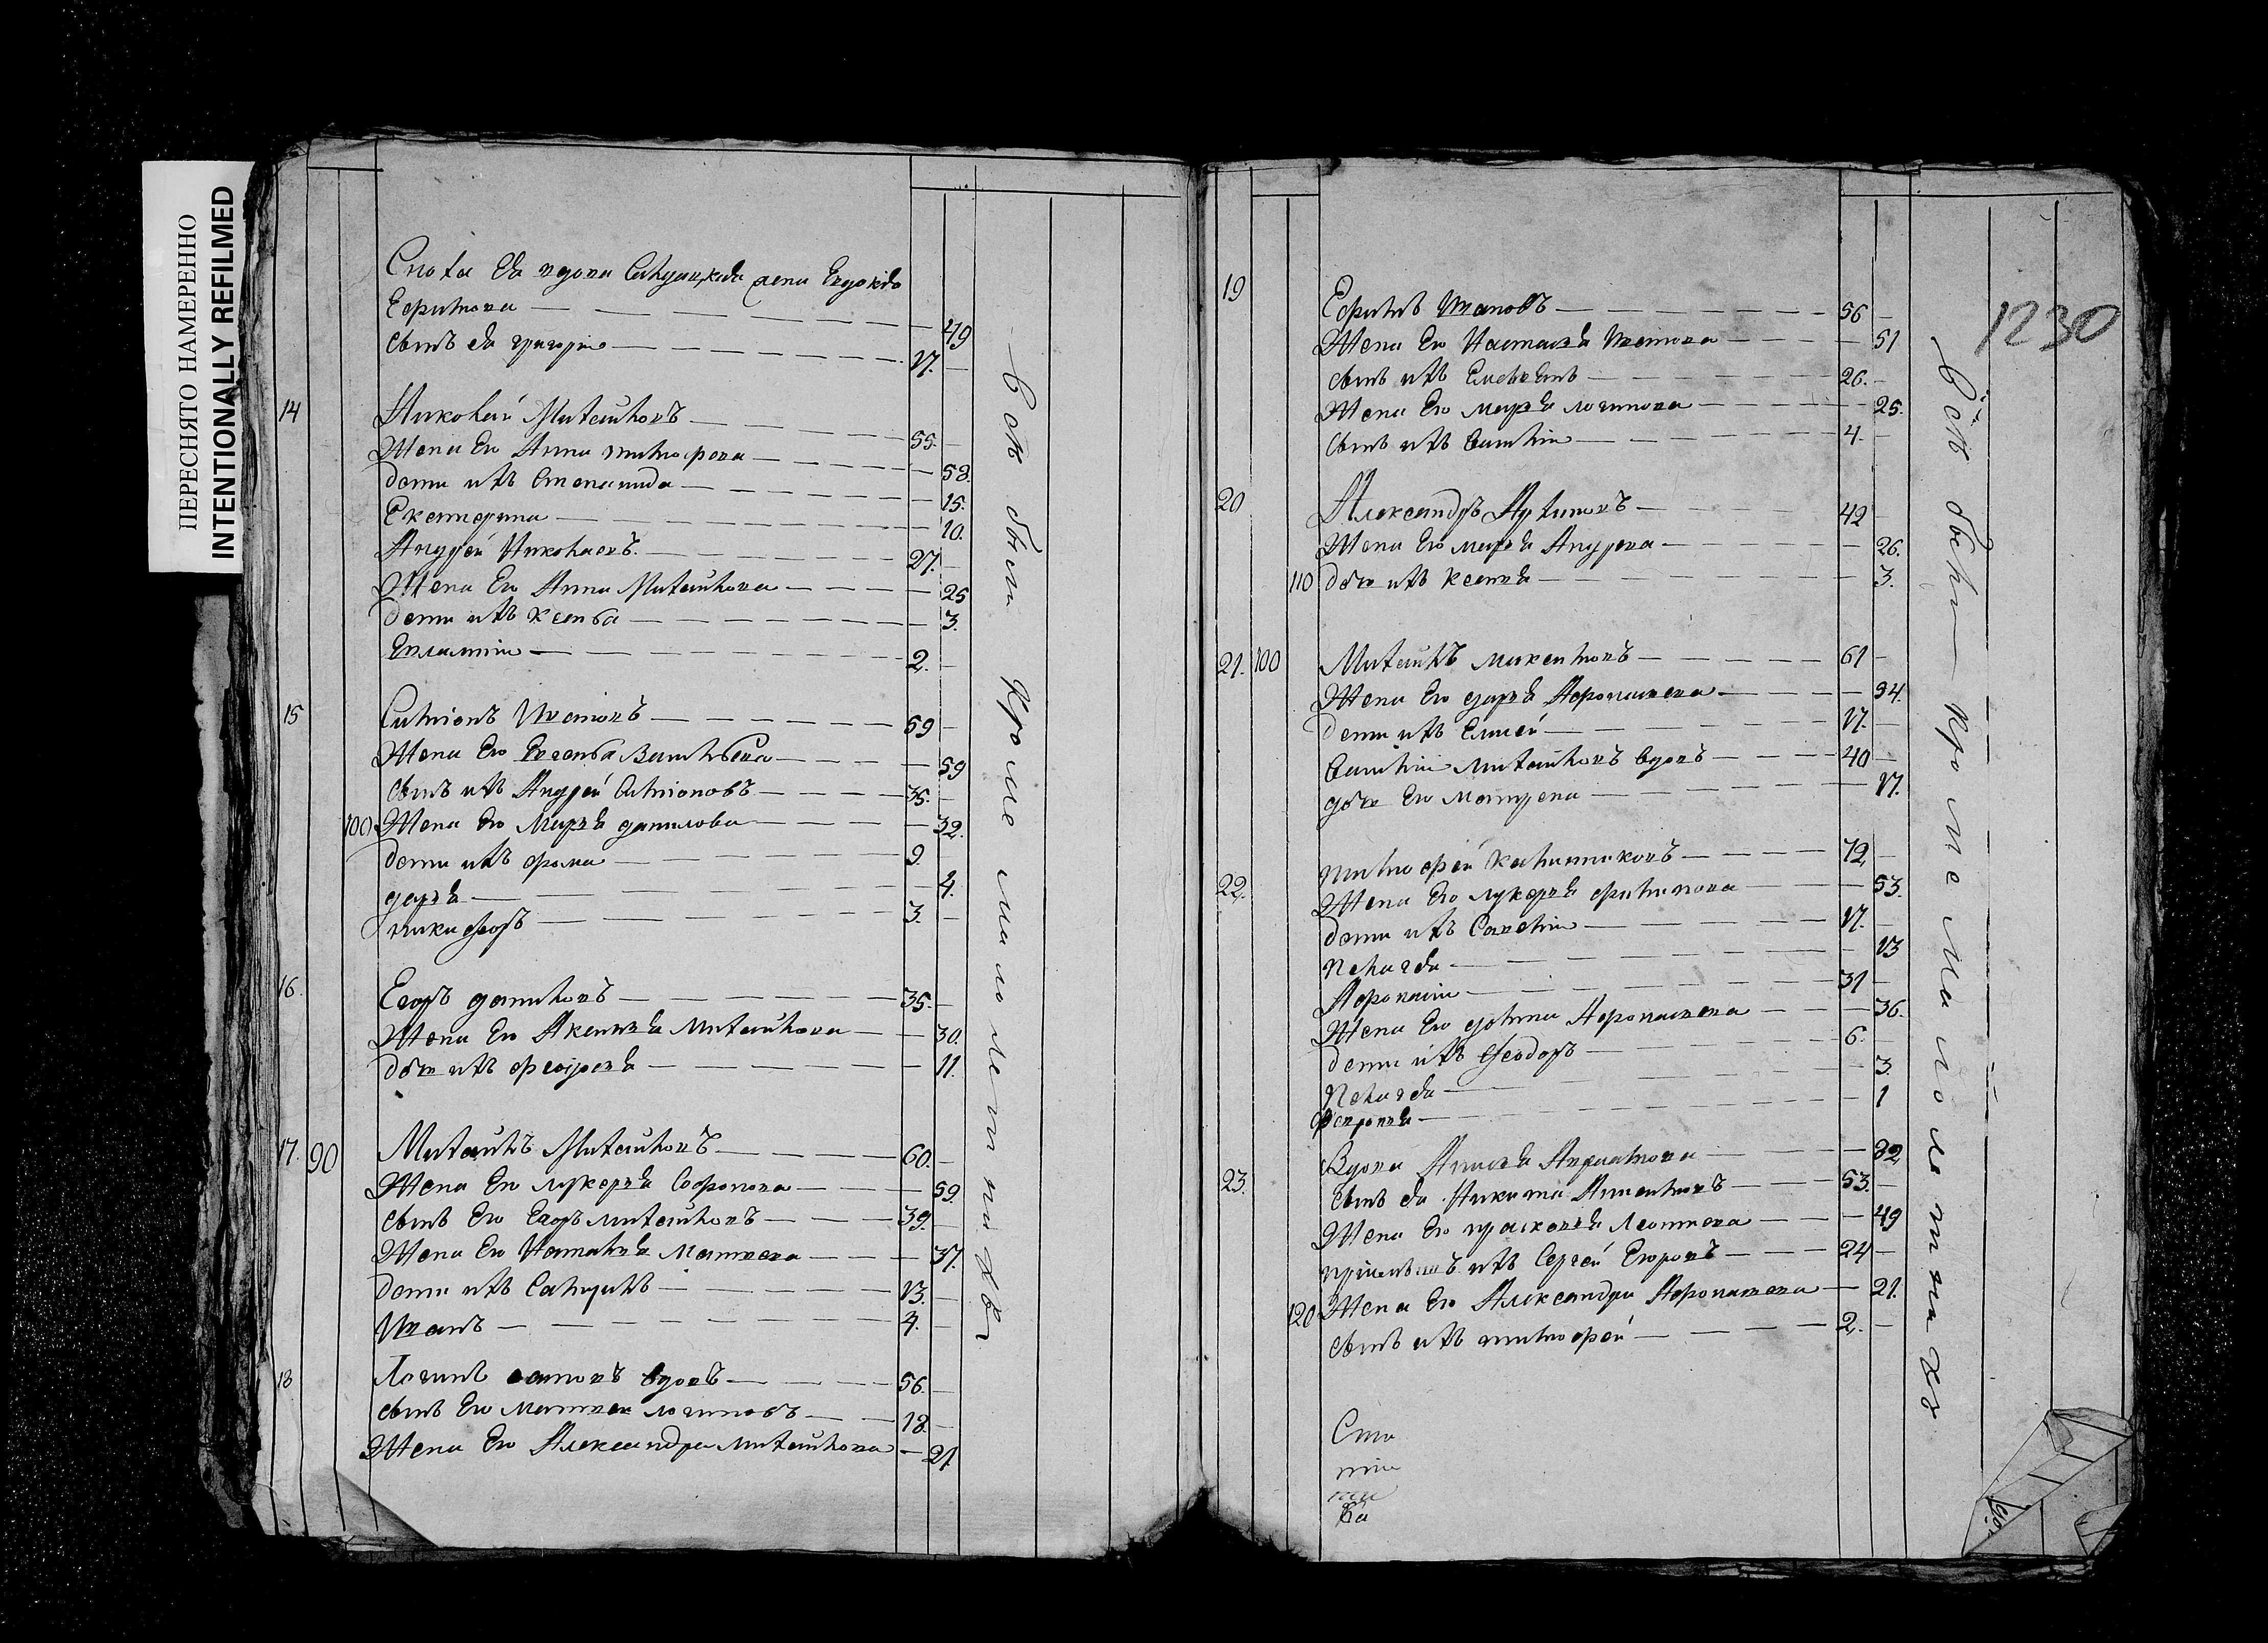 ПЕРЕСНЯТО НАМЕРЕННО
INTENTIONALLY REFILMED
Сноха ея вдова жена Евдокія
Ефимова — 49
сынъ ея григорій — 17.
14 Николай Михайловъ — 55.
Жена Его Анна тимофеева — 58.
дети ихъ Степанида — 15.
Екатерина — 10.
Андрей Николаевъ — 27.
Жена Его Анна Михайлова — 25
дети ихъ Ксенья — 3.
Евлампій — 2.
15 Симионъ Ивановъ — 59
Жена Его Васильева — 59
сынъ ихъ Андрей Симионовъ — 35.
100 Жена Его Марья данилова — 32.
дети ихъ фома — 9.
дарья — 4.
никифоръ — 3.
16. Егоръ даниловъ — 35.
Жена Его Аксинья Михайлова — 30.
дочь ихъ — 11.
17. 90 Михайлъ Михайловъ — 60.
Жена Его лукерья Софронова — 59.
сынъ Его Егоръ михайловъ — 39.
Жена Его Наталья Матвеева — 37.
дети ихъ — 13.
Иванъ — 4.
18 Логинъ вдовъ — 56.
сынъ Его Матвей логиновъ — 18.
Жена Его Александра михайлова — 21
все были кроме малолетнихъ
1230
19 Ефимъ Ивановъ — 56
Жена Его Настасья — 51
сынъ ихъ — 26.
Жена Его марья логинова — 25.
сынъ ихъ Василій — 4.
20 Александръ — 42
Жена Его марья Андреева — 26.
110 дочь ихъ Ксенья — 3.
21. 100 Михайлъ максимовъ — 61
Жена Его дарья Афонасева — 34.
дети ихъ Елисей — 17.
Василій михайловъ вдовъ — 40
дочь Его Матрена — 17.
22. тимофей — 72
Жена Его лукерья филипова — 53.
дети ихъ Савелій — 17.
Пелагея — 13
Афонасій — 31
Жена Его Афонасева — 36.
дети ихъ Феодоръ — 6.
Пелагея — 3.
Февронья — 1
23. Вдова Анисья — 82
сынъ ея Никита — 53.
Жена Его прасковья Леонтева — 49
ихъ Сергей Егоровъ — 24
120 Жена Его Александра Афонасева — 21.
сынъ ихъ тимофей — 2.
все были кроме малолетнихъ
Ста